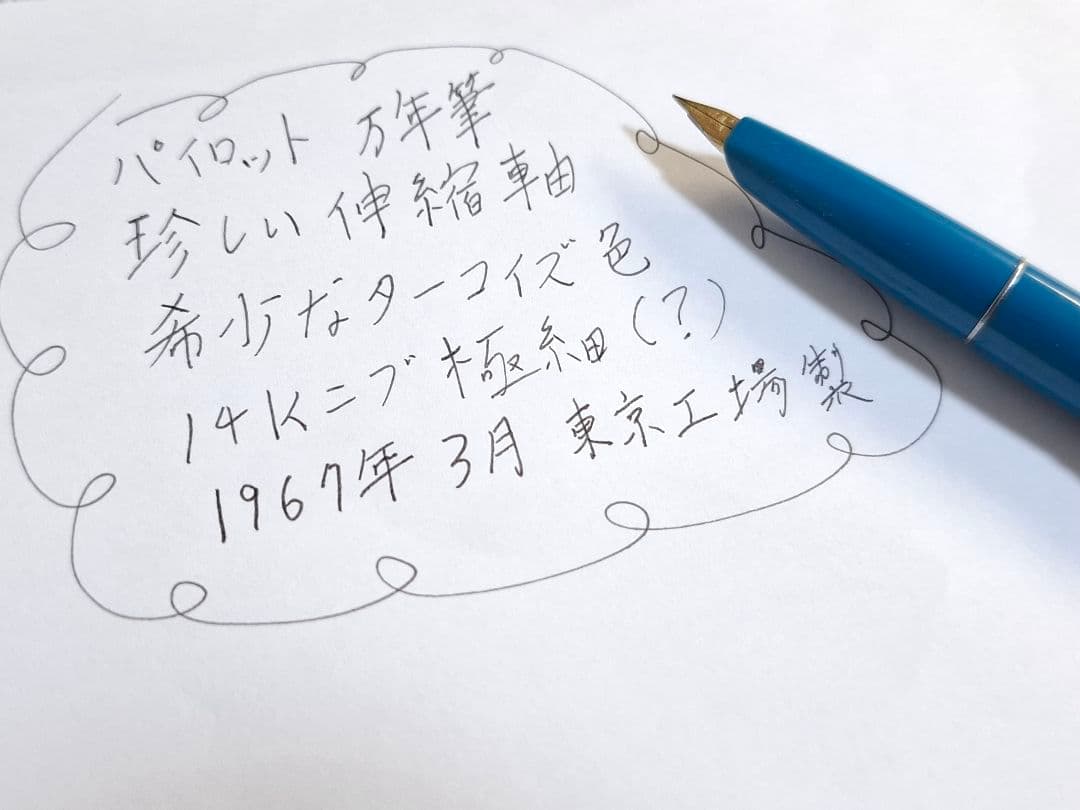 パイロット 万年筆
珍しい伸縮軸
希少なターコイズ色
14Kニブ 極細(?)
1967年 3月 東京工場製